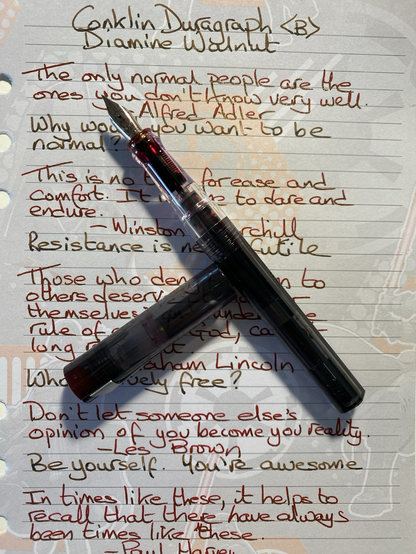 Conklin Duragraph <B>
Diamine Walnut
The only normal people are the
ones you don't know very well.
Alfred Adler
Why you want to be
normal?
This is no for ease and
comfort. It to dare and
endure.
- Winston
Resistance is futile
Those who to
others
themselves
rule of God,
long
Lincoln
free?
Don't let someone else's
opinion of you become you reality.
-Les Brown
Be yourself. You're awesome
In times like these, it helps to
recall that there have always
been times like these.
- Paul Harvey